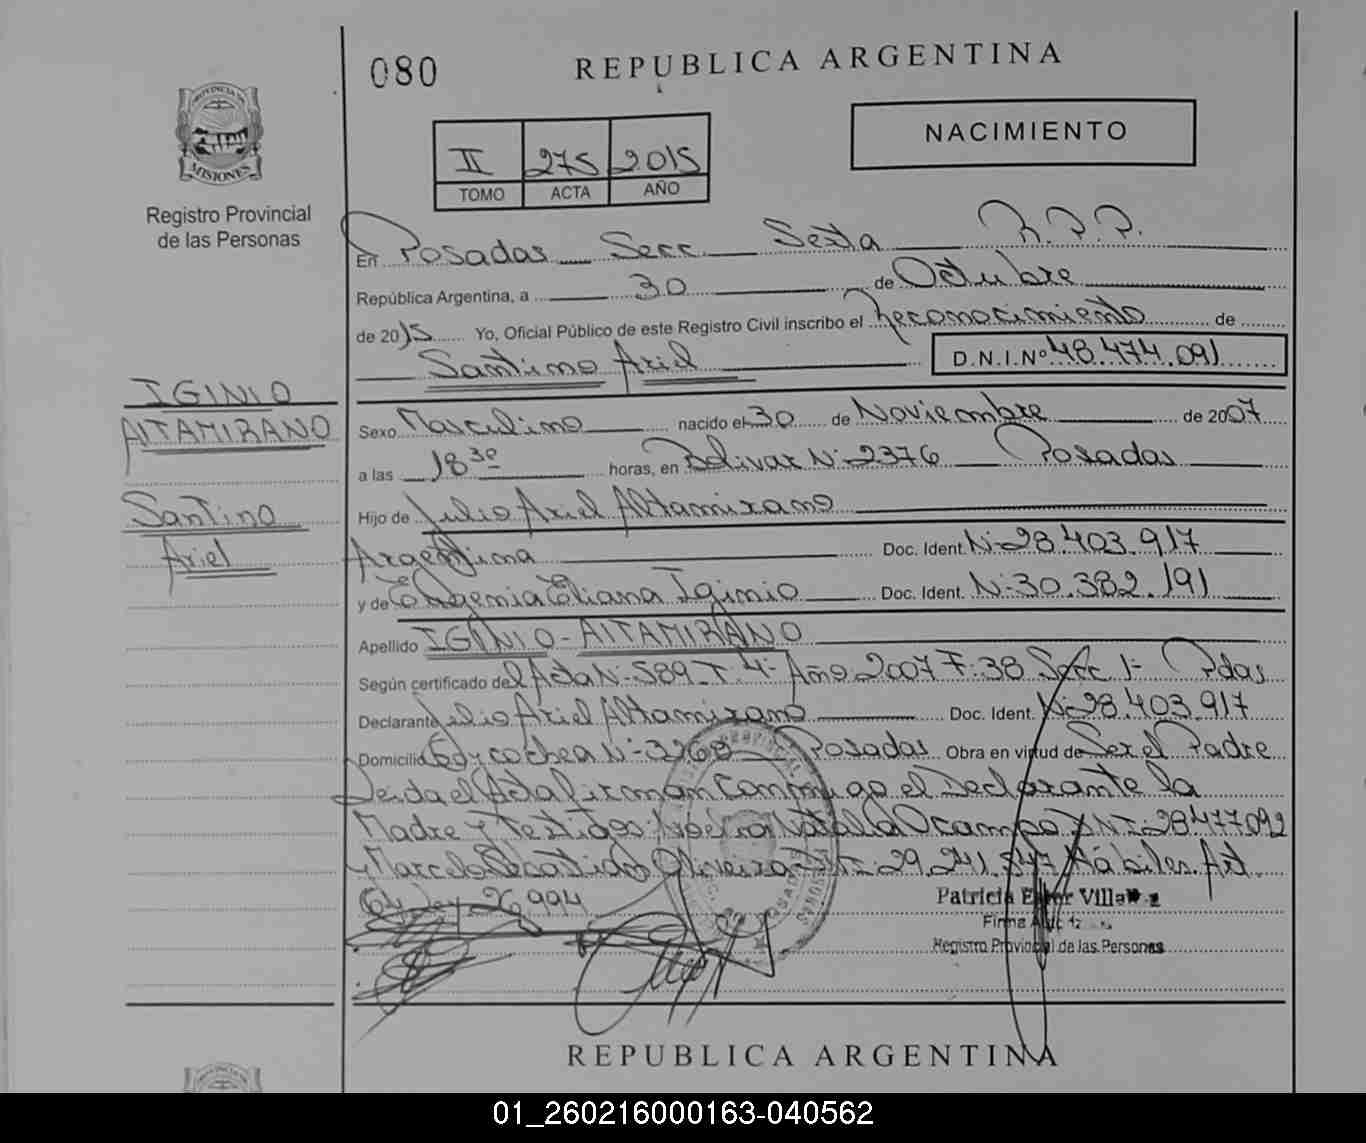 080
REPUBLICA ARGENTINA
NACIMIENTO
II 275 2015
TOMO ACTA AÑO
PROVINCIA DE
MISIONES
Registro Provincial
de las Personas
En Posadas Secc. Sexta R.P.P.
República Argentina, a 30 de Octubre
de 2015 Yo, Oficial Público de este Registro Civil inscribo el Reconocimiento de
Santino Ariel D.N.I.Nº 48.474.091
IGINIO
ALTAMIRANO
Santino
Ariel
Sexo Masculino nacido el 30 de Noviembre de 2007
a las 18 30 horas, en Bolivar Nº 2376 Posadas
Hijo de Julio Ariel Altamirano
Argentina Doc. Ident. Nº 28.403.917
y de Eugenia Eliana Iginio Doc. Ident. Nº 30.382.191
Apellido IGINIO - ALTAMIRANO
Según certificado del Acta Nº 589 T. 4º Año 2007 F: 38 Secc 1º Pdas
Declarante Julio Ariel Altamirano Doc. Ident. Nº 28.403.917
Domicilio Nº 3260 Posadas Obra en virtud de Ser el Padre
Leida el Acta firman conmigo el Declarante la
Madre y Testigos Natalia Ocampo DNI: 28477092
y Marcelo Sebastian Oliveira 29.241.547 Hábiles. Art.
64 Ley 26.994
Patricia Villa
Firma
Registro Provincial de las Personas
REPUBLICA ARGENTINA
PROVINCIA DE
01_260216000163-040562